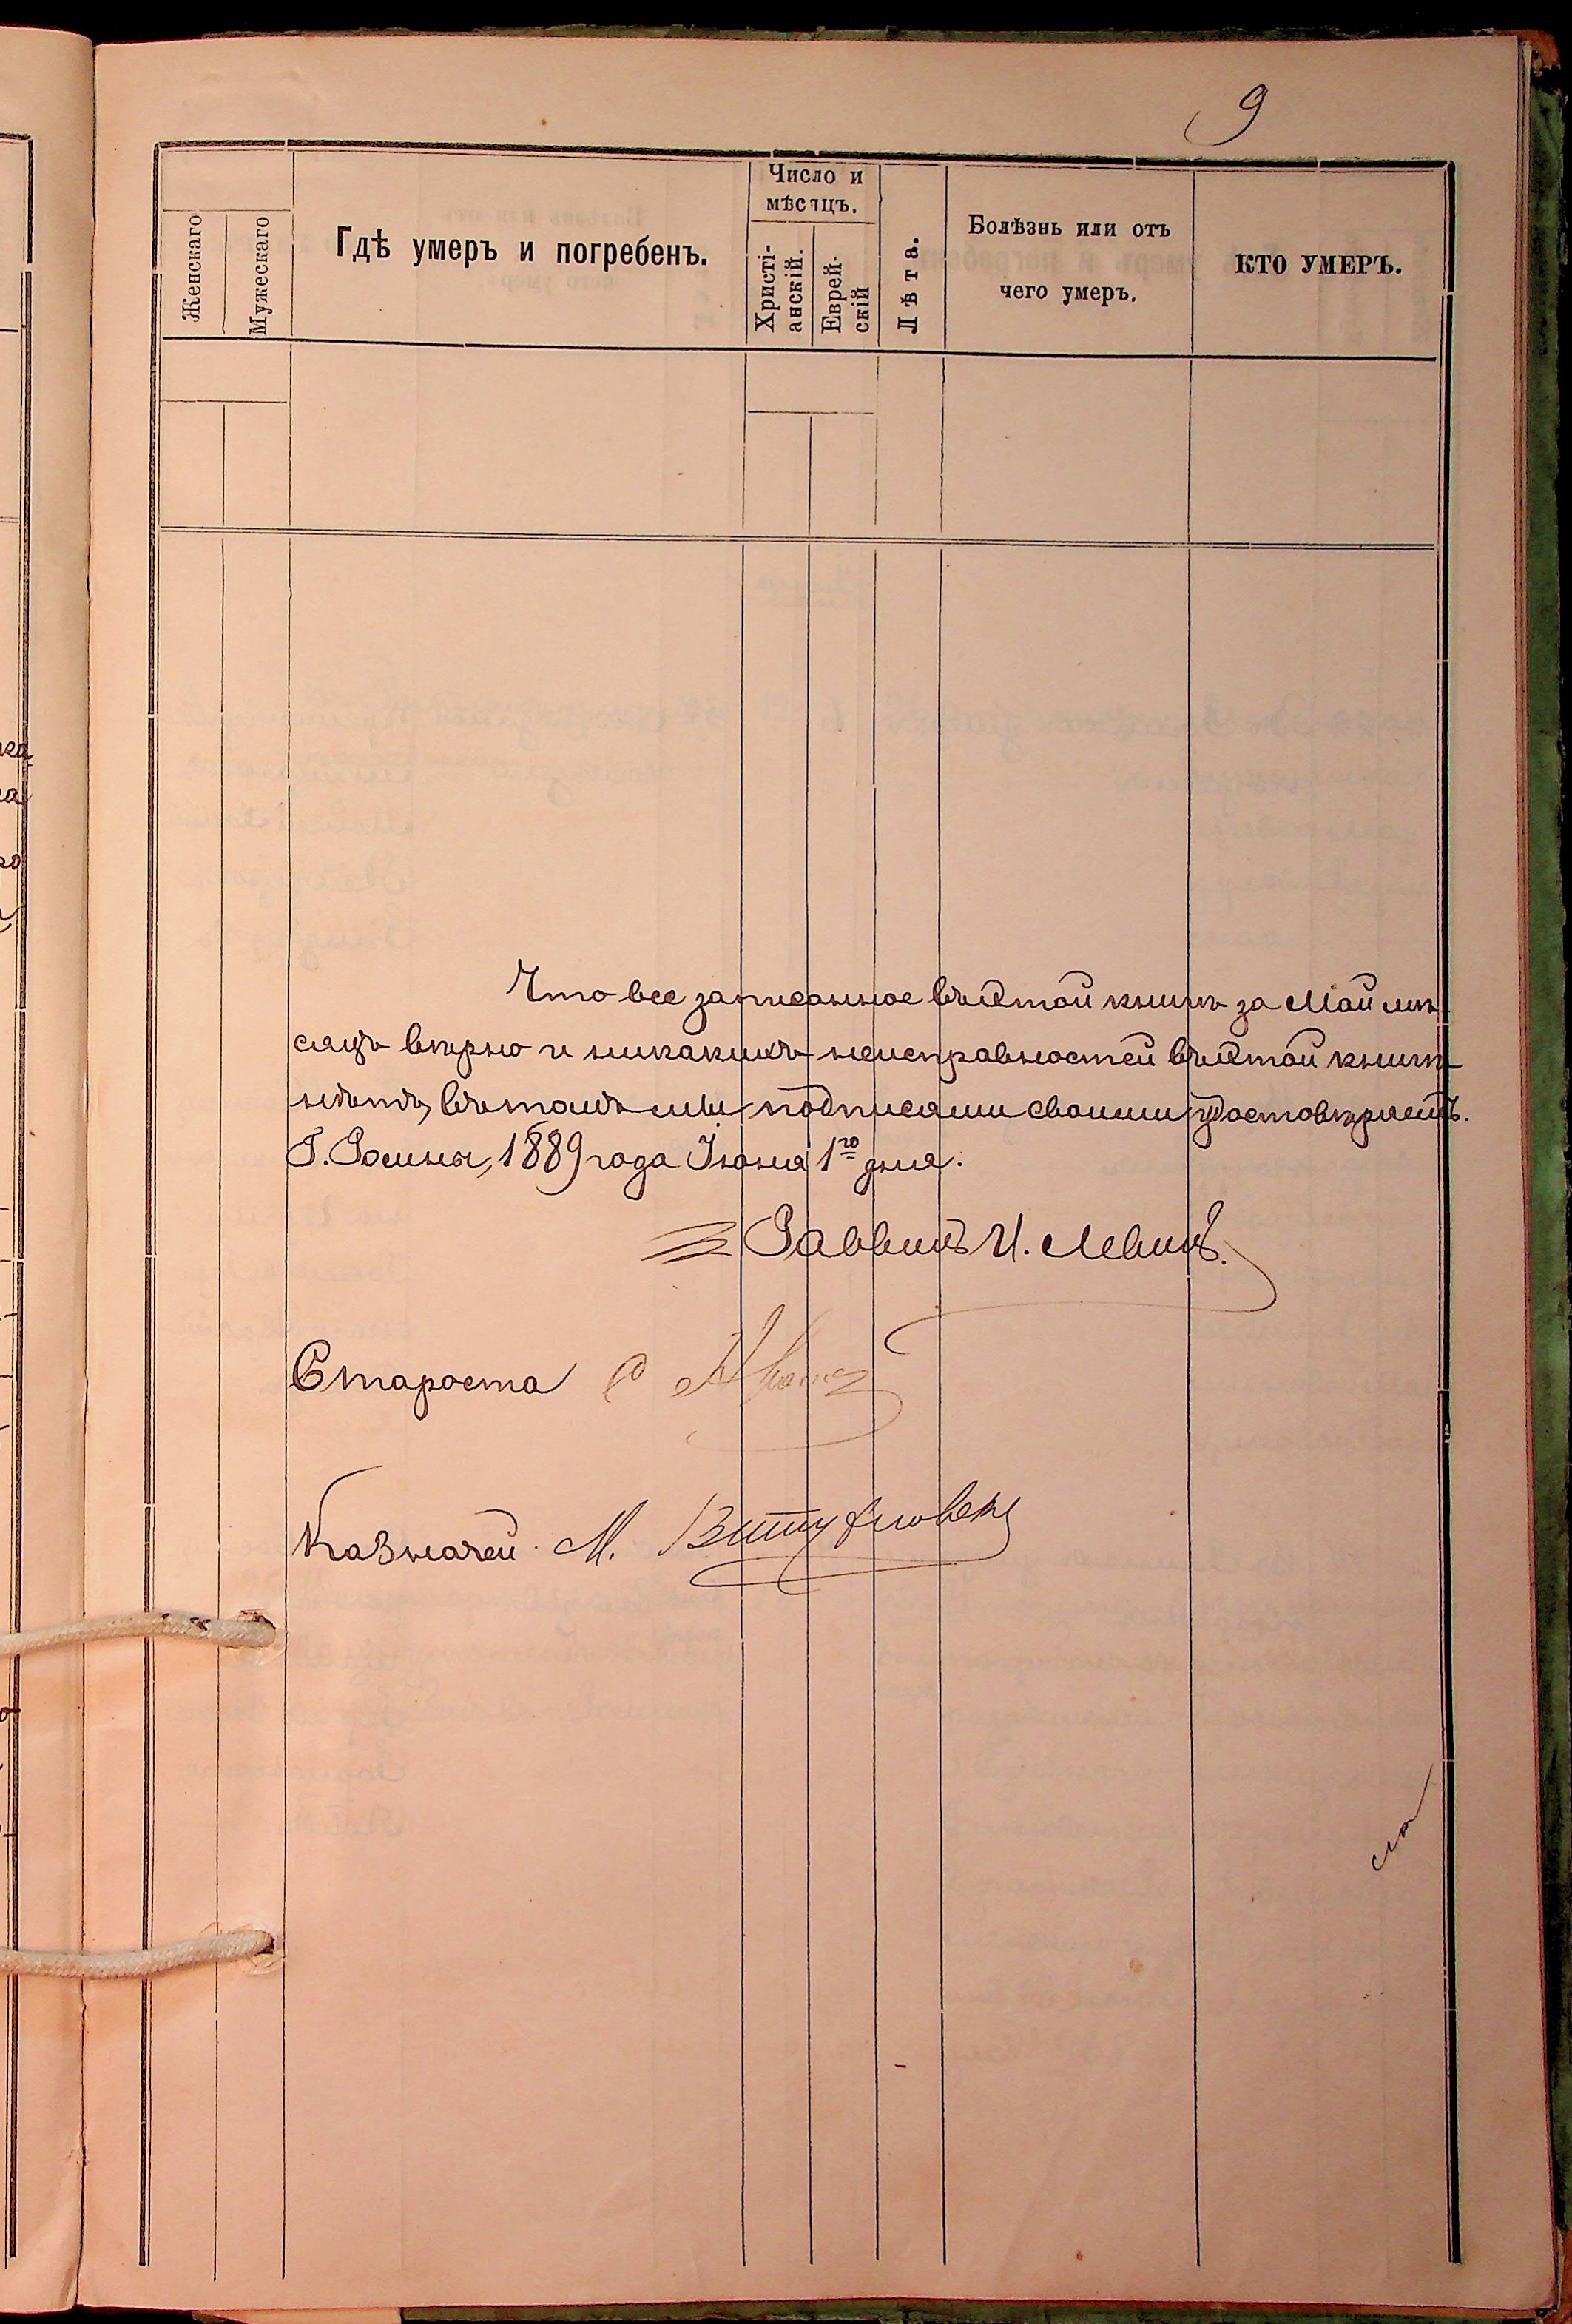 9
Женскаго
Мужескаго
Гдѣ умеръ и погребенъ.
Число и
мѣсяцъ.
Христі-
анскій.
Еврей-
скій
Лѣта.
Болѣзнь или отъ
чего умеръ.
КТО УМЕРЪ.
Что все записанное въ этой книгѣ за Май мѣ
сяцъ вѣрно и никакихъ неисправностей въ этой книгѣ
нѣтъ, въ томъ мы подписями своими удостовѣряемъ.
Г. Ромны, 1889 года Іюня 1го дня.
Раввинъ И. Левинъ.
Староста
Казначей М.